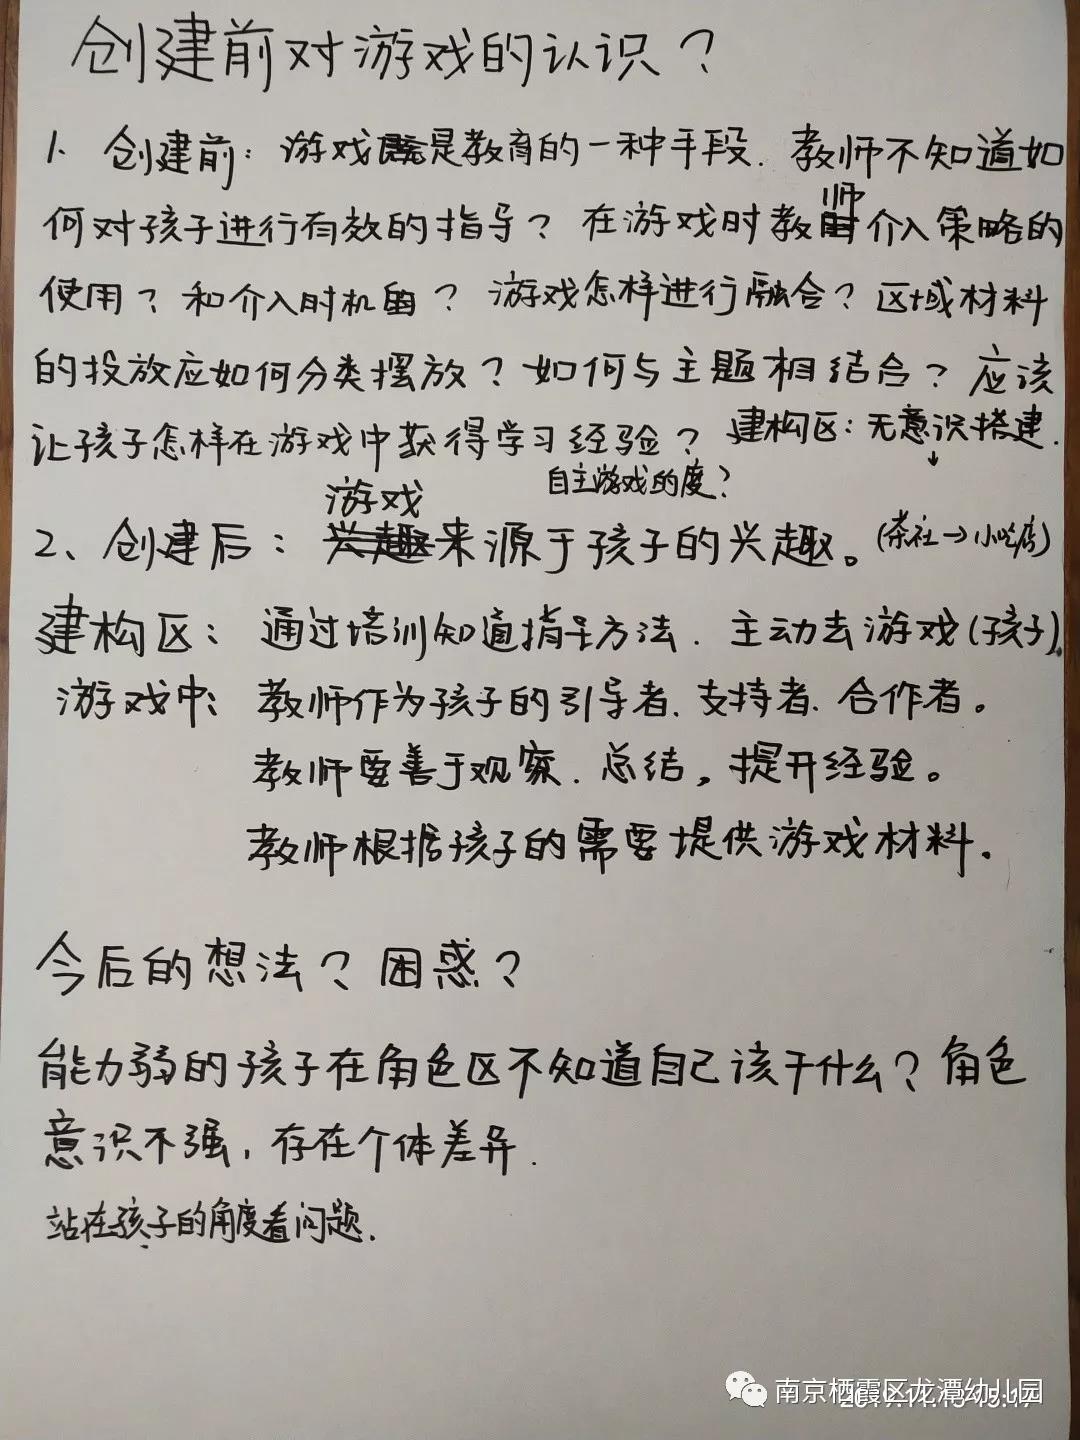 创建前对游戏的认识？
1、创建前：游戏既是教育的一种手段．教师不知道如
何对孩子进行有效的指导？在游戏时教师介入策略的
使用？和介入时机的？游戏怎样进行融合？区域材料
的投放应如何分类摆放？如何与主题相结合？应该
让孩子怎样在游戏中获得学习经验？建构区：无意识搭建．
↓
自主游戏的度？
2、创建后：游戏来源于孩子的兴趣。（茶社→小吃店）
建构区：通过培训知道指导方法．主动去游戏（孩子）．
游戏中：教师作为孩子的引导者、支持者、合作者。
教师要善于观察、总结，提升经验。
教师根据孩子的需要提供游戏材料．
今后的想法？困惑？
能力弱的孩子在角色区不知道自己该干什么？角色
意识不强，存在个体差异．
站在孩子的角度看问题．
南京栖霞区龙潭幼儿园